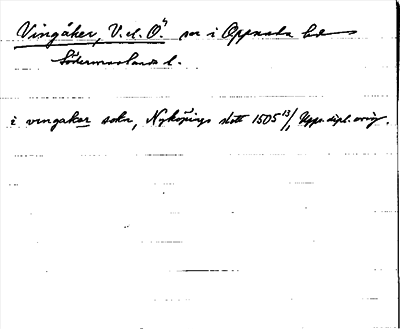 Vingåker, V. o. Ö. sn i Oppunda hd
Södermanlands l.
i vingaker sokn, Nyköpings slott 1505 13/1 Upps. dipl. orig.